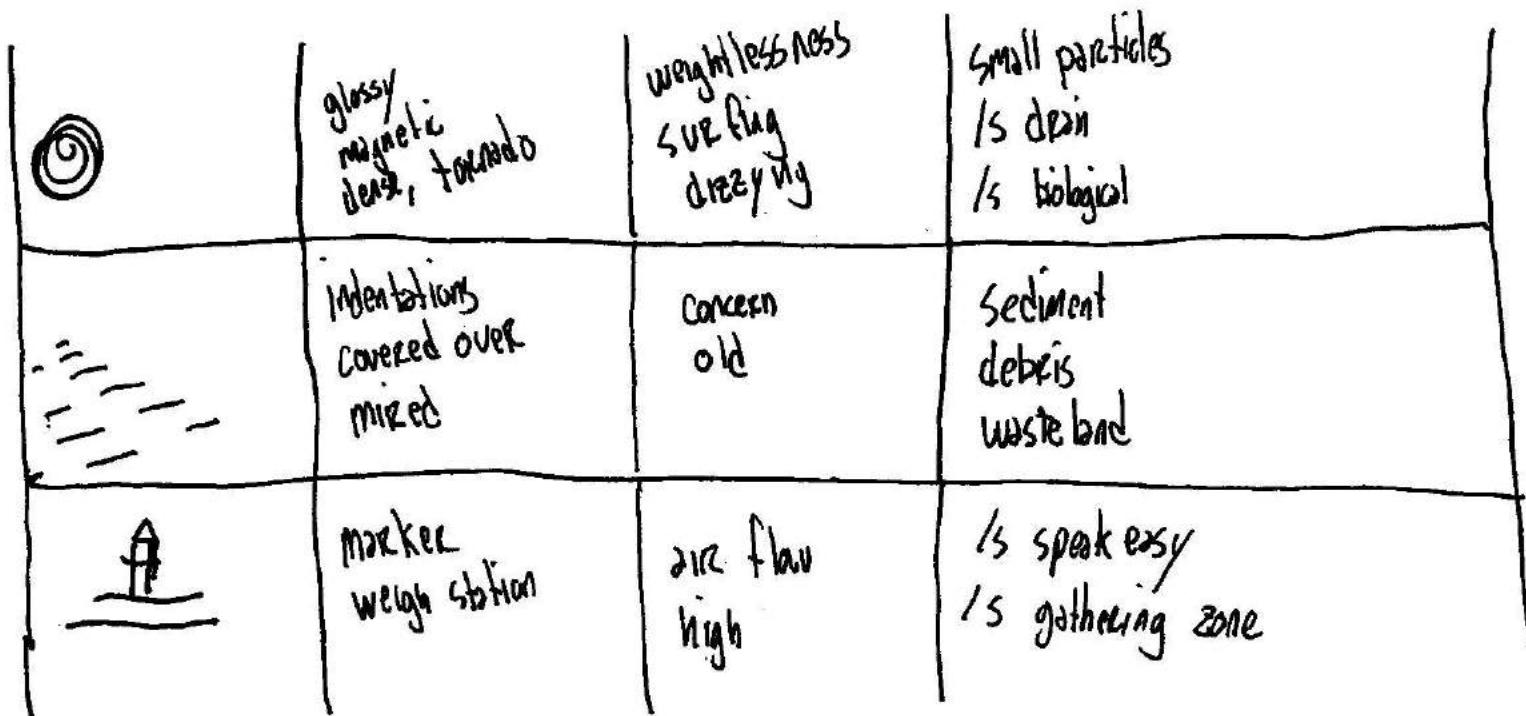 glossy
magnetic
dense, tornado
weightlessness
surfing
dizzying
small particles
/s drain
/s biological
indentations
covered over
mired
concern
old
sediment
debris
wasteland
marker
weigh station
air flow
high
/s speak easy
/s gathering zone